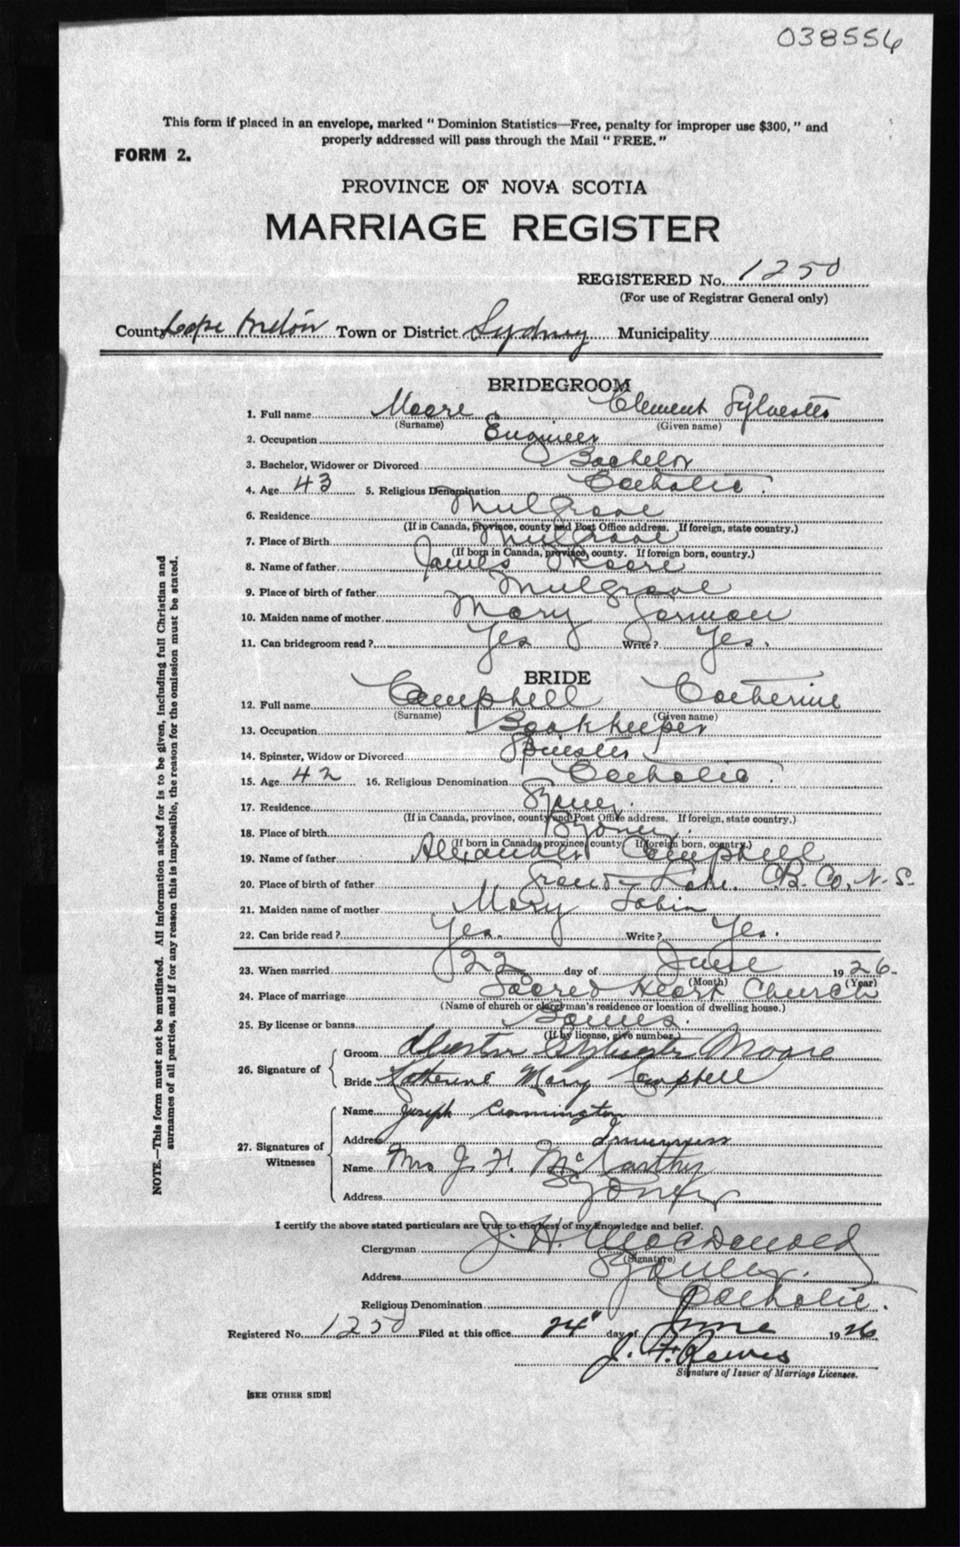 038556
This form if placed in an envelope, marked "Dominion Statistics—Free, penalty for improper use $300," and
properly addressed will pass through the Mail "FREE."
FORM 2.
PROVINCE OF NOVA SCOTIA
MARRIAGE REGISTER
REGISTERED No. 1250
(For use of Registrar General only)
County Cape Breton Town or District Sydney Municipality
BRIDEGROOM
1. Full name Moore Clement Sylvester
(Surname) (Given name)
2. Occupation Engineer
3. Bachelor, Widower or Divorced Bachelor
4. Age 43 5. Religious Denomination Catholic.
6. Residence Mulgrave
(If in Canada, province, county and Post Office address. If foreign, state country.)
7. Place of Birth Mulgrave
(If born in Canada, province, county. If foreign born, country.)
8. Name of father James Moore
9. Place of birth of father Mulgrave
10. Maiden name of mother Mary
11. Can bridegroom read? Yes Write? Yes.
BRIDE
12. Full name Campbell Catherine
(Surname) (Given name)
13. Occupation Bookkeeper
14. Spinster, Widow or Divorced Spinster
15. Age 42 16. Religious Denomination Catholic.
17. Residence Sydney.
(If in Canada, province, county and Post Office address. If foreign, state country.)
18. Place of birth Sydney.
(If born in Canada, province, county. If foreign born, country.)
19. Name of father Alexander Campbell
20. Place of birth of father Grand Lake. C.B. Co. N.S.
21. Maiden name of mother Mary Tobin
22. Can bride read? Yes. Write? Yes.
23. When married 22 day of June 1926.
(Month) (Year)
24. Place of marriage Sacred Heart Church
(Name of church or clergyman's residence or location of dwelling house.)
25. By license or banns Banns.
(If by license, give number.)
26. Signature of
Groom Sylvester Moore
Bride Katherine Mary Campbell
27. Signatures of Witnesses
Name Joseph Cunnington
Address Inverness
Name Mrs J. H. McCarthy
Address Sydney
I certify the above stated particulars are true to the best of my knowledge and belief.
Clergyman J. H. MacDonald
(Signature)
Address Sydney.
Religious Denomination Catholic.
Registered No. 1250 Filed at this office 24" day of June 1926
J. F.
Signature of Issuer of Marriage Licenses.
[SEE OTHER SIDE]
NOTE.—This form must not be mutilated. All information asked for is to be given, including full Christian and
surnames of all parties, and if for any reason this is impossible, the reason for the omission must be stated.